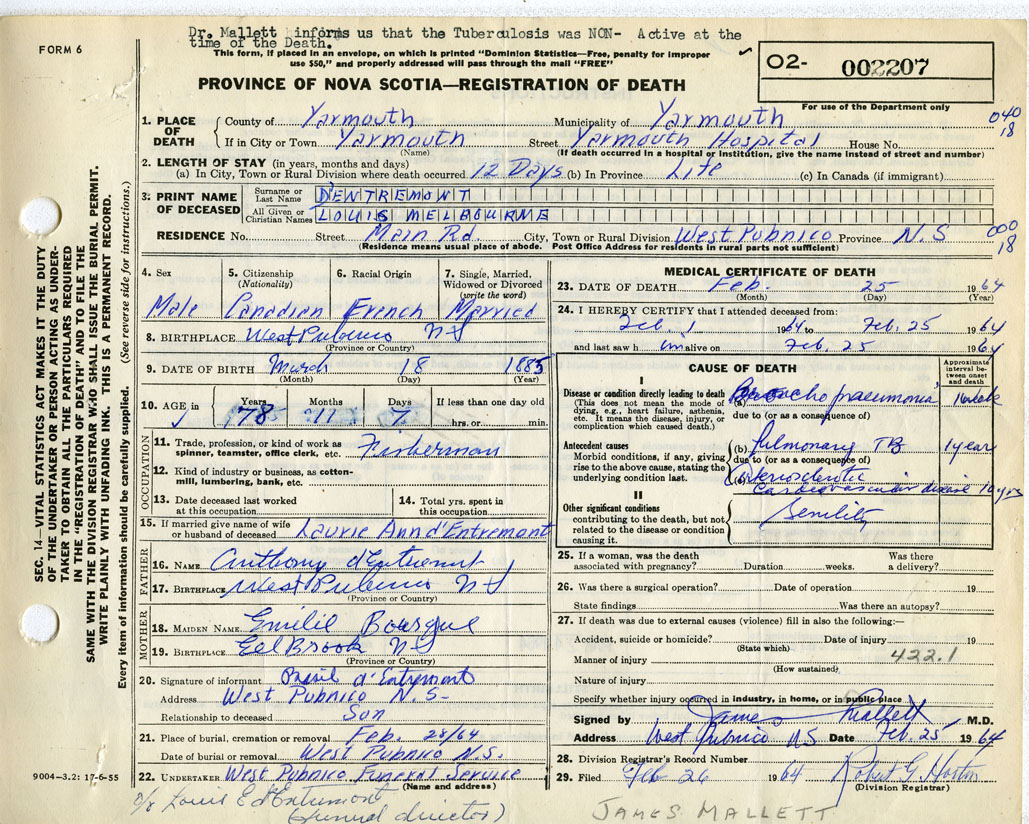 Dr. Mallett informs us that the Tuberculosis was NON- Active at the
time of the Death.
FORM 6
This form, if placed in an envelope, on which is printed "Dominion Statistics—Free, penalty for improper
use $50," and properly addressed will pass through the mail "FREE"
O2- 002207
For use of the Department only
PROVINCE OF NOVA SCOTIA—REGISTRATION OF DEATH
1. PLACE OF DEATH
County of Yarmouth Municipality of Yarmouth
040
18
If in City or Town Yarmouth Street Yarmouth Hospital House No.
(Name) (If death occurred in a hospital or institution, give the name instead of street and number)
2. LENGTH OF STAY (in years, months and days)
(a) In City, Town or Rural Division where death occurred 12 Days (b) In Province Life (c) In Canada (if immigrant)
3. PRINT NAME OF DECEASED
Surname or Last Name D'ENTREMONT
All Given or Christian Names LOUIS MELBOURNE
RESIDENCE No. Street Main Rd. City, Town or Rural Division West Pubnico Province N.S
000
18
(Residence means usual place of abode. Post Office Address for residents in rural parts not sufficient)
4. Sex Male
5. Citizenship (Nationality) Canadian
6. Racial Origin French
7. Single, Married, Widowed or Divorced (write the word) Married
8. BIRTHPLACE West Pubnico NS
(Province or Country)
9. DATE OF BIRTH March 18 1885
(Month) (Day) (Year)
10. AGE in Years Months Days If less than one day old
78 11 7 hrs. or min.
OCCUPATION
11. Trade, profession, or kind of work as spinner, teamster, office clerk, etc. Fisherman
12. Kind of industry or business, as cotton-mill, lumbering, bank, etc.
13. Date deceased last worked at this occupation
14. Total yrs. spent in this occupation
15. If married give name of wife or husband of deceased Laurie Ann d'Entremont
FATHER
16. NAME Anthony d'Entremont
17. BIRTHPLACE West Pubnico NS
(Province or Country)
MOTHER
18. MAIDEN NAME Emilie Bourque
19. BIRTHPLACE Eel Brook NS
(Province or Country)
20. Signature of informant d'Entremont
Address West Pubnico N.S-
Relationship to deceased Son
21. Place of burial, cremation or removal Feb. 28/64
Date of burial or removal West Pubnico N.S.
22. UNDERTAKER West Pubnico Funeral Service
(Name and address)
c/o Louis E d'Entremont
(funeral director)
MEDICAL CERTIFICATE OF DEATH
23. DATE OF DEATH Feb. 25 1964
(Month) (Day) (Year)
24. I HEREBY CERTIFY that I attended deceased from:
Feb 1 1964 to Feb. 25 1964
and last saw him alive on Feb. 25 1964
CAUSE OF DEATH
Approximate interval between onset and death
I
Disease or condition directly leading to death (a) Broncho pneumonia 1 week
(This does not mean the mode of dying, e.g., heart failure, asthenia, etc. It means the disease, injury, or complication which caused death.)
due to (or as a consequence of)
Antecedent causes (b) Pulmonary TB 1 year
Morbid conditions, if any, giving rise to the above cause, stating the underlying condition last.
due to (or as a consequence of)
(c) Arteriosclerotic
cardiovascular disease 10 yrs
II
Other significant conditions
contributing to the death, but not related to the disease or condition causing it.
Senility
25. If a woman, was the death associated with pregnancy? Duration weeks. Was there a delivery?
26. Was there a surgical operation? Date of operation 19
State findings Was there an autopsy?
27. If death was due to external causes (violence) fill in also the following:—
Accident, suicide or homicide? Date of injury 19
(State which)
Manner of injury 422.1
(How sustained)
Nature of injury
Specify whether injury occurred in industry, in home, or in public place
Signed by James Mallett M.D.
Address West Pubnico NS Date Feb. 25 1964
28. Division Registrar's Record Number
29. Filed Feb 26 1964 Robert G. Horton
(Division Registrar)
JAMES MALLETT
SEC. 14—VITAL STATISTICS ACT MAKES IT THE DUTY
OF THE UNDERTAKER OR PERSON ACTING AS UNDER-
TAKER TO OBTAIN ALL THE PARTICULARS REQUIRED
IN THE "REGISTRATION OF DEATH" AND TO FILE THE
SAME WITH THE DIVISION REGISTRAR WHO SHALL ISSUE THE BURIAL PERMIT.
WRITE PLAINLY WITH UNFADING INK. THIS IS A PERMANENT RECORD.
Every item of information should be carefully supplied. (See reverse side for instructions.)
9004—3.2: 17-6-55